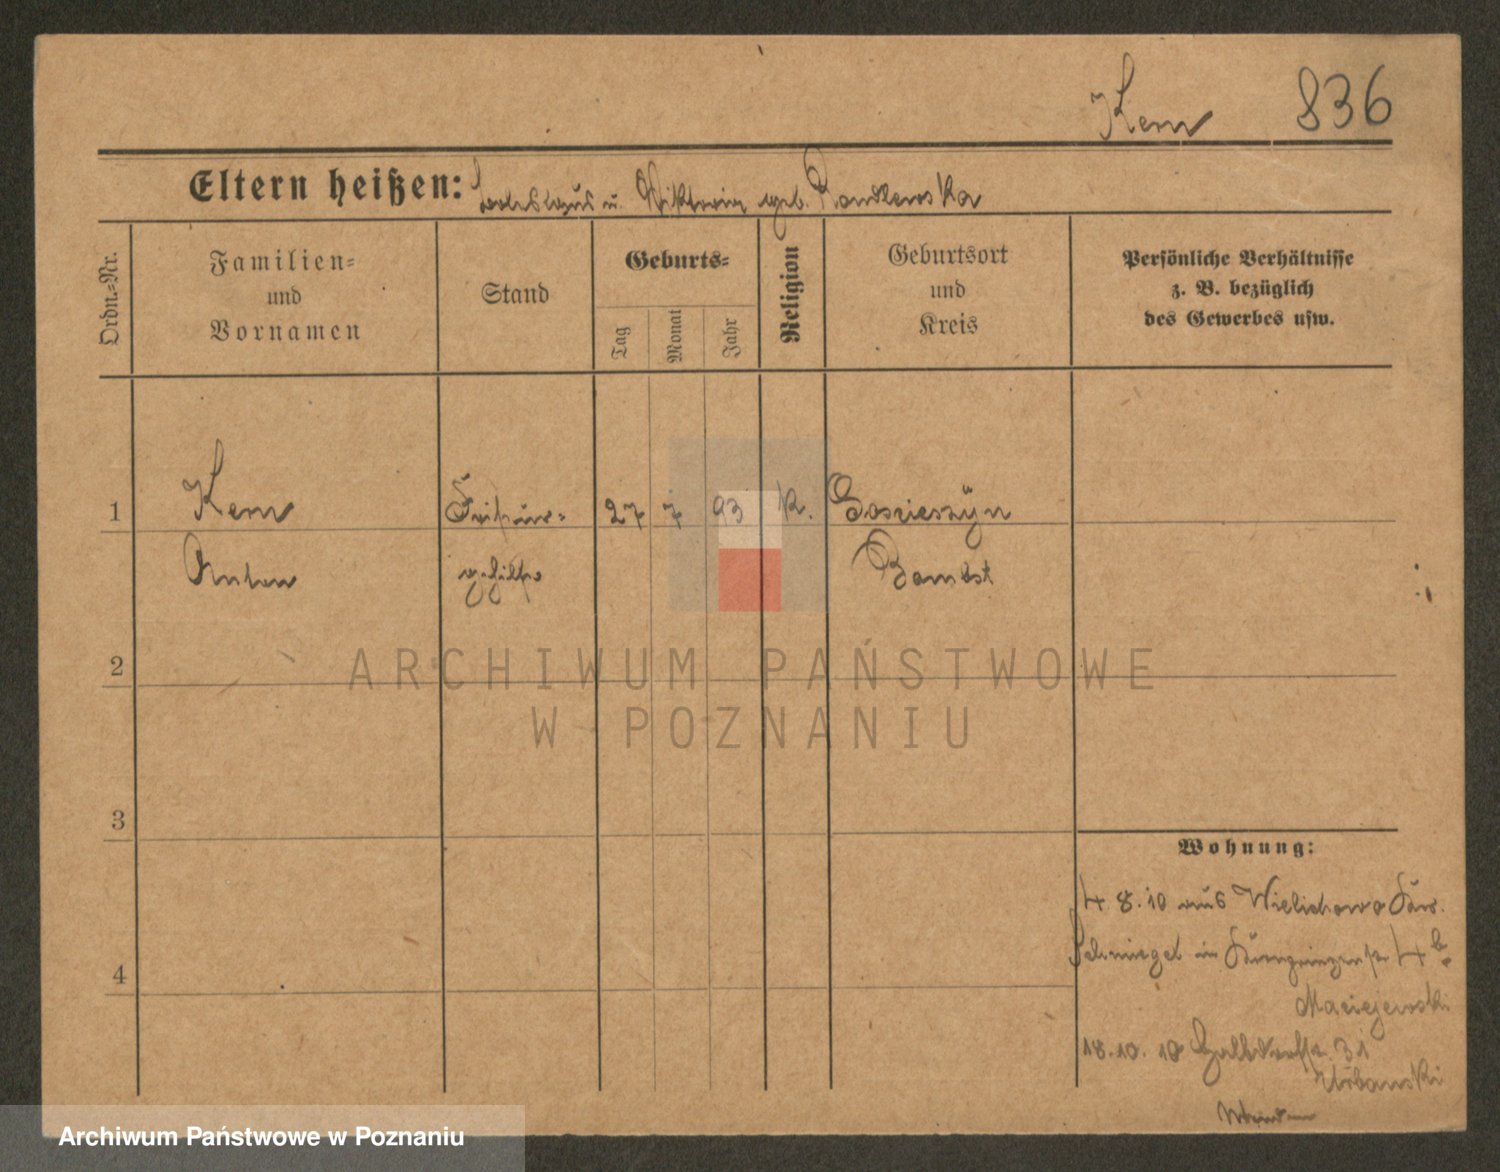 Kem 836
Eltern heißen: u. Wiktoria geb.
Ordn.=Nr.
Familien=
und
Vornamen
Stand
Geburts=
Tag
Monat
Jahr
Religion
Geburtsort
und
Kreis
Persönliche Verhältnisse
z. B. bezüglich
des Gewerbes usw.
1 Kem Frisör= 27 7 93 k. Goscieszyn
Anton gehilfe Bomst
2
3
4
Wohnung:
4 8.10 aus Wielichowo Krs.
Schmiegel in 4
Maciejewski
18.10.10 Halbdorfstr. 31
Urbanski
ARCHIWUM PAŃSTWOWE
W POZNANIU
Archiwum Państwowe w Poznaniu